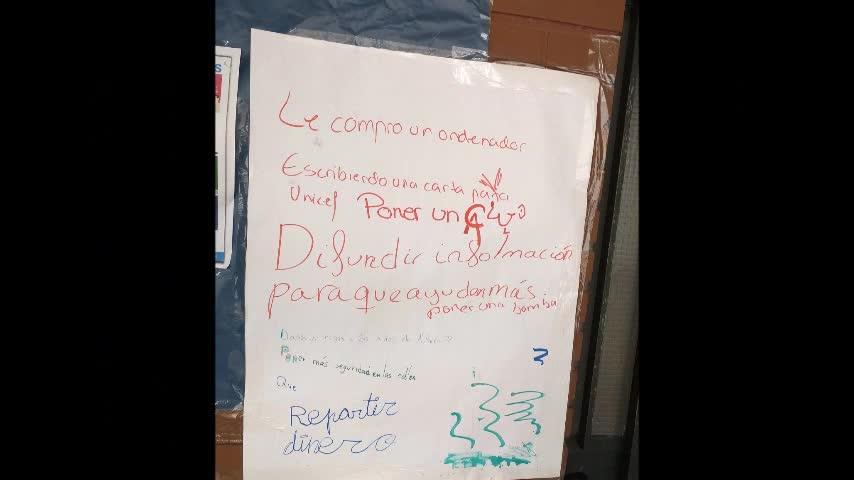 S
Le compro un ordenador
Escribiendo una carta para
Unicef Poner un
Difundir información
para que ayudan más.
poner una bomba
Poner más seguridad en las
Que
Repartir
dinero